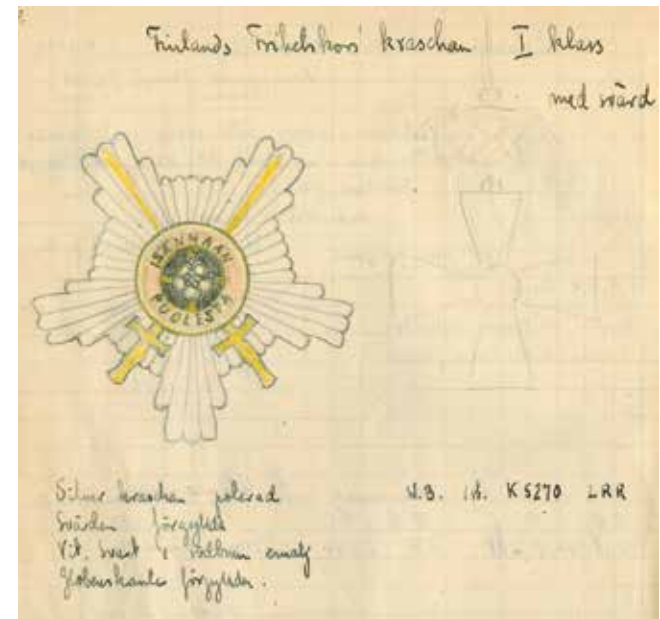 Finlands Frihetskors' kraschan I klass
med svärd
ISÄNMAAN
PUOLESTA
Silver kraschan polerad
Svärden förgyllda
Vit, svart & emalj
förgyllda.
W.B. K 5270 LRR